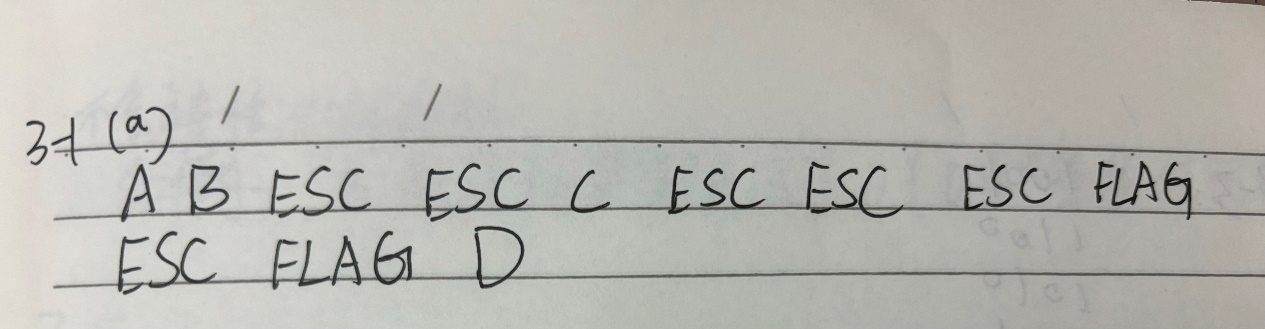 3-1 (a)
A B ESC ESC C ESC ESC ESC FLAG
ESC FLAG D